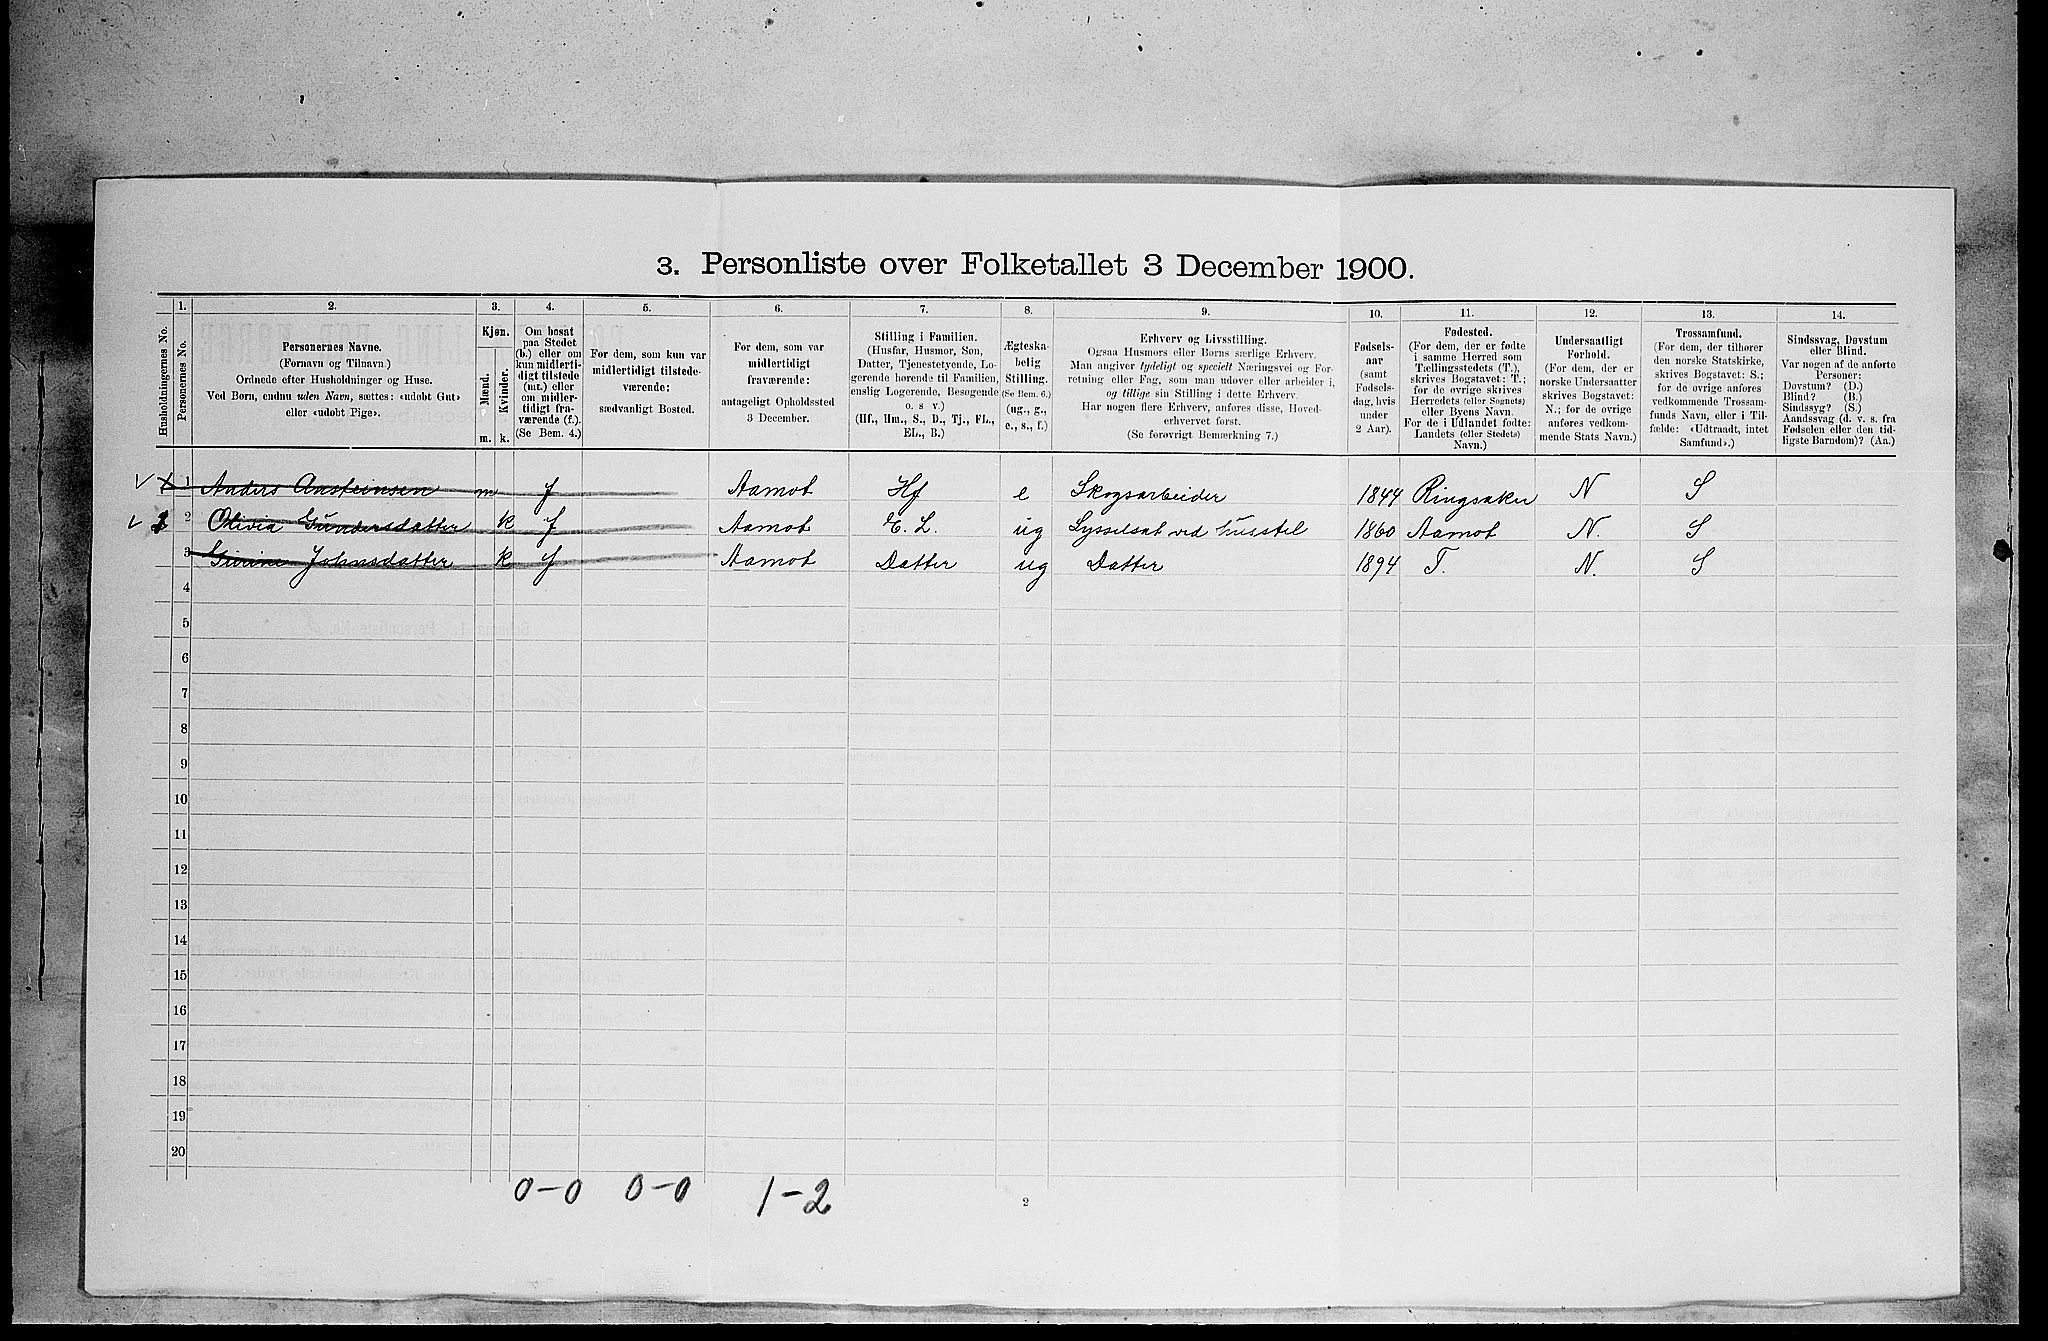 3. Personliste over Folketallet 3 December 1900.
1. 2. 3. 4. 5. 6. 7. 8. 9. 10. 11. 12. 13. 14.
Husholdningernes No.
Personernes No.
Personernes Navne.
(Fornavn og Tilnavn.)
Ordnede efter Husholdninger og Huse.
Ved Børn, endnu uden Navn, sættes: «udøbt Gut»
eller «udøbt Pige».
Kjøn.
Mænd.
Kvinder.
m. k.
Om bosat
paa Stedet
(b.) eller om
kun midlerti-
digt tilstede
(mt.) eller
om midler-
tidigt fra-
værende (f.).
(Se Bem. 4.)
For dem, som kun var
midlertidigt tilstede-
værende:
sædvanligt Bosted.
For dem, som var
midlertidigt
fraværende:
antageligt Opholdssted
3 December.
Stilling i Familien.
(Husfar, Husmor, Søn,
Datter, Tjenestetyende, Lo-
gerende hørende til Familien,
enslig Logerende, Besøgende
o. s v.)
(Hf., Hm., S., D., Tj., FL.,
EL., B.)
Ægteska-
belig
Stilling.
(Se Bem. 6.)
(ug., g.,
e., s., f.)
Erhverv og Livsstilling.
Ogsaa Husmors eller Børns særlige Erhverv.
Man angiver tydeligt og specielt Næringsvei og For-
retning eller Fag, som man udøver eller arbeider i,
og tillige sin Stilling i dette Erhverv.
Har nogen flere Erhverv, anføres disse, Hoved-
erhvervet først.
(Se forøvrigt Bemærkning 7.)
Fødsels-
aar
(samt
Fødsels-
dag, hvis
under
2 Aar).
Fødested.
(For dem, der er fødte
i samme Herred som
Tællingsstedets (T.),
skrives Bogstavet: T.;
for de øvrige skrives
Herredets (eller Sognets)
eller Byens Navn.
For de i Udlandet fødte:
Landets (eller Stedets)
Navn.)
Undersaatligt
Forhold.
(For dem, der er
norske Undersaatter
skrives Bogstavet:
N.; for de øvrige
anføres vedkom-
mende Stats Navn.)
Trossamfund.
(For dem, der tilhører
den norske Statskirke,
skrives Bogstavet: S.;
for de øvrige anføres
vedkommende Trossam-
funds Navn, eller i Til-
fælde: «Udtraadt, intet
Samfund».)
Sindssvag, Døvstum
eller Blind.
Var nogen af de anførte
Personer:
Døvstum? (D.)
Blind? (B.)
Sindssyg? (S.)
Aandssvag (d. v. s. fra
Fødselen eller den tid-
ligste Barndom)? (Aa.)
1 Anders Aasteinsen m f Aamot Hf e Skogsarbeider 1844 Ringsaker N S
2 Olivia Gundersdatter k f Aamot E. L. ug Sysselsat ved husstel 1860 Aamot N. S
3 Johnsdatter k f Aamot Datter ug Datter 1894 T. N. S
4
5
6
7
8
9
10
11
12
13
14
15
16
17
18
19
20
0-0 0-0 1-2
2